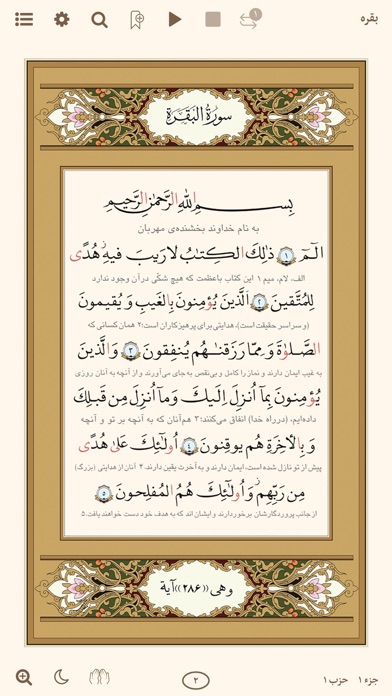 بقره
سورة البقرة
بسم الله الرحمن الرحیم
به نام خداوند بخشنده‌ی مهربان
الٓمٓ ۝۱ ذٰلِكَ الْكِتٰبُ لَا رَيبَ فيهِ هُدًى
الف، لام، میم ۱ این کتاب باعظمت که هیچ شکّی درآن وجود ندارد
لِلْمُتَّقينَ ۝۲ اَلَّذينَ يُؤمِنونَ بِالغَيبِ وَ يُقيمونَ
(و سراسر حقیقت است)، هدایتی برای پرهیزکاران است؛۲ همان کسانی که
الصَّلوٰةَ وَ مِمّا رَزَقنٰهُم يُنفِقونَ ۝۳ وَ الَّذينَ
به غیب ایمان دارند و نماز را کامل و بی‌نقص به جای می‌آورند و از آنچه به آنان روزی
يُؤمِنونَ بِمآ اُنزِلَ اِلَيكَ وَ مآ اُنزِلَ مِن قَبلِكَ
داده‌ایم، (درراه خدا) انفاق می‌کنند؛۳ هم‌آنان که به آنچه بر تو و آنچه
وَ بِالآخِرَةِ هُم يوقِنونَ ۝۴ اُولٰٓئِكَ عَلىٰ هُدًى
پیش از تو نازل شده است، ایمان دارند و به آخرت یقین دارند.۴ آنان از هدایتی (بزرگ)
مِن رَبِّهِم وَ اُولٰٓئِكَ هُمُ المُفلِحونَ ۝۵
از جانب پروردگارشان برخوردارند و ایشان‌اند که به هدف خود دست خواهند یافت.۵
وهی «۲۸۶» آیة
جزء ۱ حزب ۱
۲